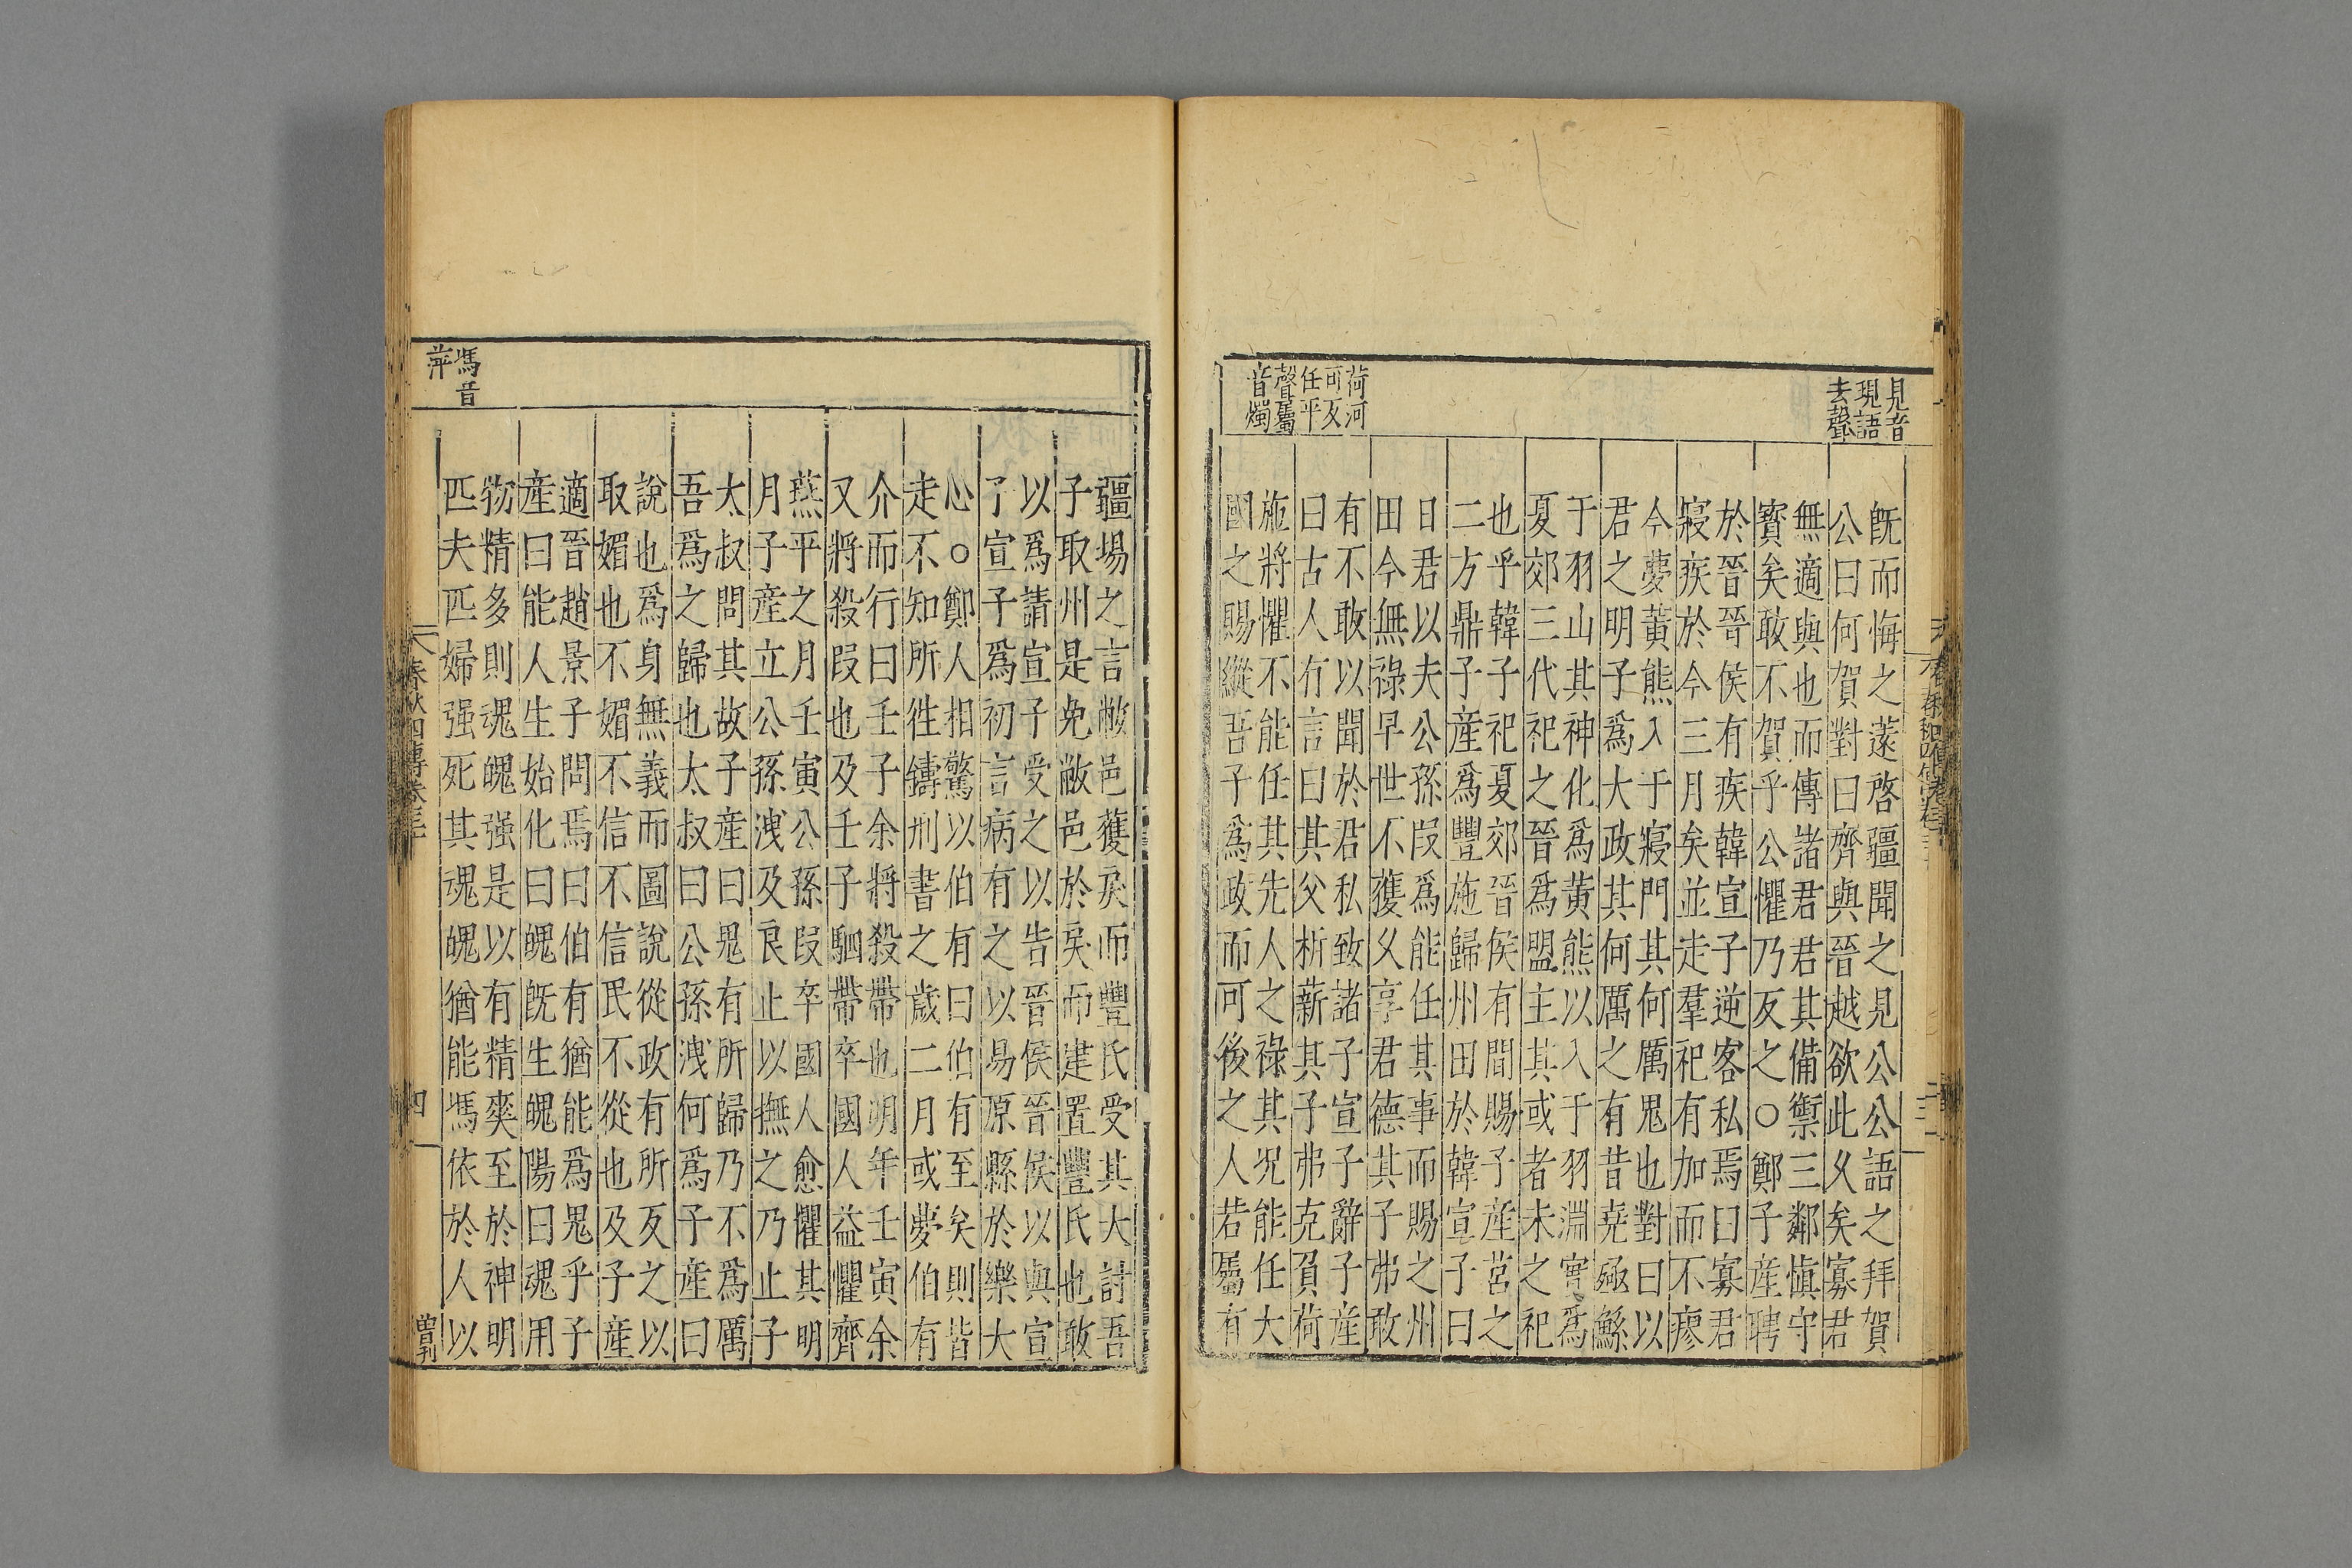 見音
現語
去聲
既而悔之薳啓疆聞之見公公語之拜賀
公曰何賀對曰齊與晉越欲此久矣寡君
無適與也而傳諸君君其備禦三鄰慎守
寳矣敢不賀乎公懼乃反之○鄭子産聘
於晉晉侯有疾韓宣子逆客私焉曰寡君
寢疾於今三月矣並走羣祀有加而不瘳
今夢黃熊入于寢門其何厲鬼也對曰以
君之明子爲大政其何厲之有昔堯殛鯀
于羽山其神化爲黃熊以入于羽淵實爲
夏郊三代祀之晉爲盟主其或者未之祀
也乎韓子祀夏郊晉侯有間賜子産莒之
二方鼎子産爲豐施歸州田於韓宣子曰
日君以夫公孫段爲能任其事而賜之州
田今無祿早世不獲久享君德其子弗敢
有不敢以聞於君私致諸子宣子辭子産
曰古人有言曰其父析薪其子弗克負荷
施將懼不能任其先人之祿其況能任大
國之賜縱吾子爲政而可後之人若屬有
荷河
可反
任平
聲屬
音燭
疆埸之言敝邑獲戾而豐氏受其大討吾
子取州是免敝邑於戾而建置豐氏也敢
以爲請宣子受之以告晉侯晉侯以與宣
子宣子爲初言病有之以易原縣於樂大
心○鄭人相驚以伯有曰伯有至矣則皆
走不知所往鑄刑書之歲二月或夢伯有
介而行曰壬子余將殺帶也明年壬寅余
又將殺段也及壬子駟帶卒國人益懼齊
燕平之月壬寅公孫段卒國人愈懼其明
月子産立公孫洩及良止以撫之乃止子
太叔問其故子産曰鬼有所歸乃不爲厲
吾爲之歸也太叔曰公孫洩何爲子産曰
說也爲身無義而圖說從政有所反之以
取媚也不媚不信不信民不從也及子産
適晉趙景子問焉曰伯有猶能爲鬼乎子
産曰能人生始化曰魄既生魄陽曰魂用
物精多則魂魄强是以有精爽至於神明
匹夫匹婦强死其魂魄猶能馮依於人以
馮音
萍
春秋四傳卷三十
四
曾刊